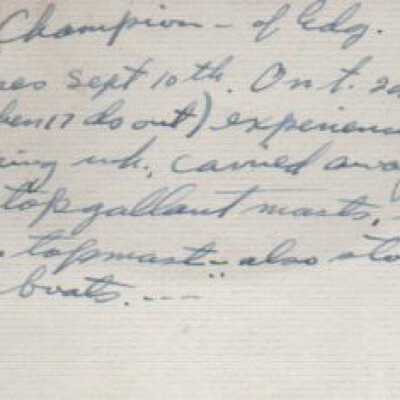 Champion - of Edg.
Sept 10th. Oct. 2d
17 do out) experienc
carried away
topgallant masts,
topmast - also sto
boats. ----